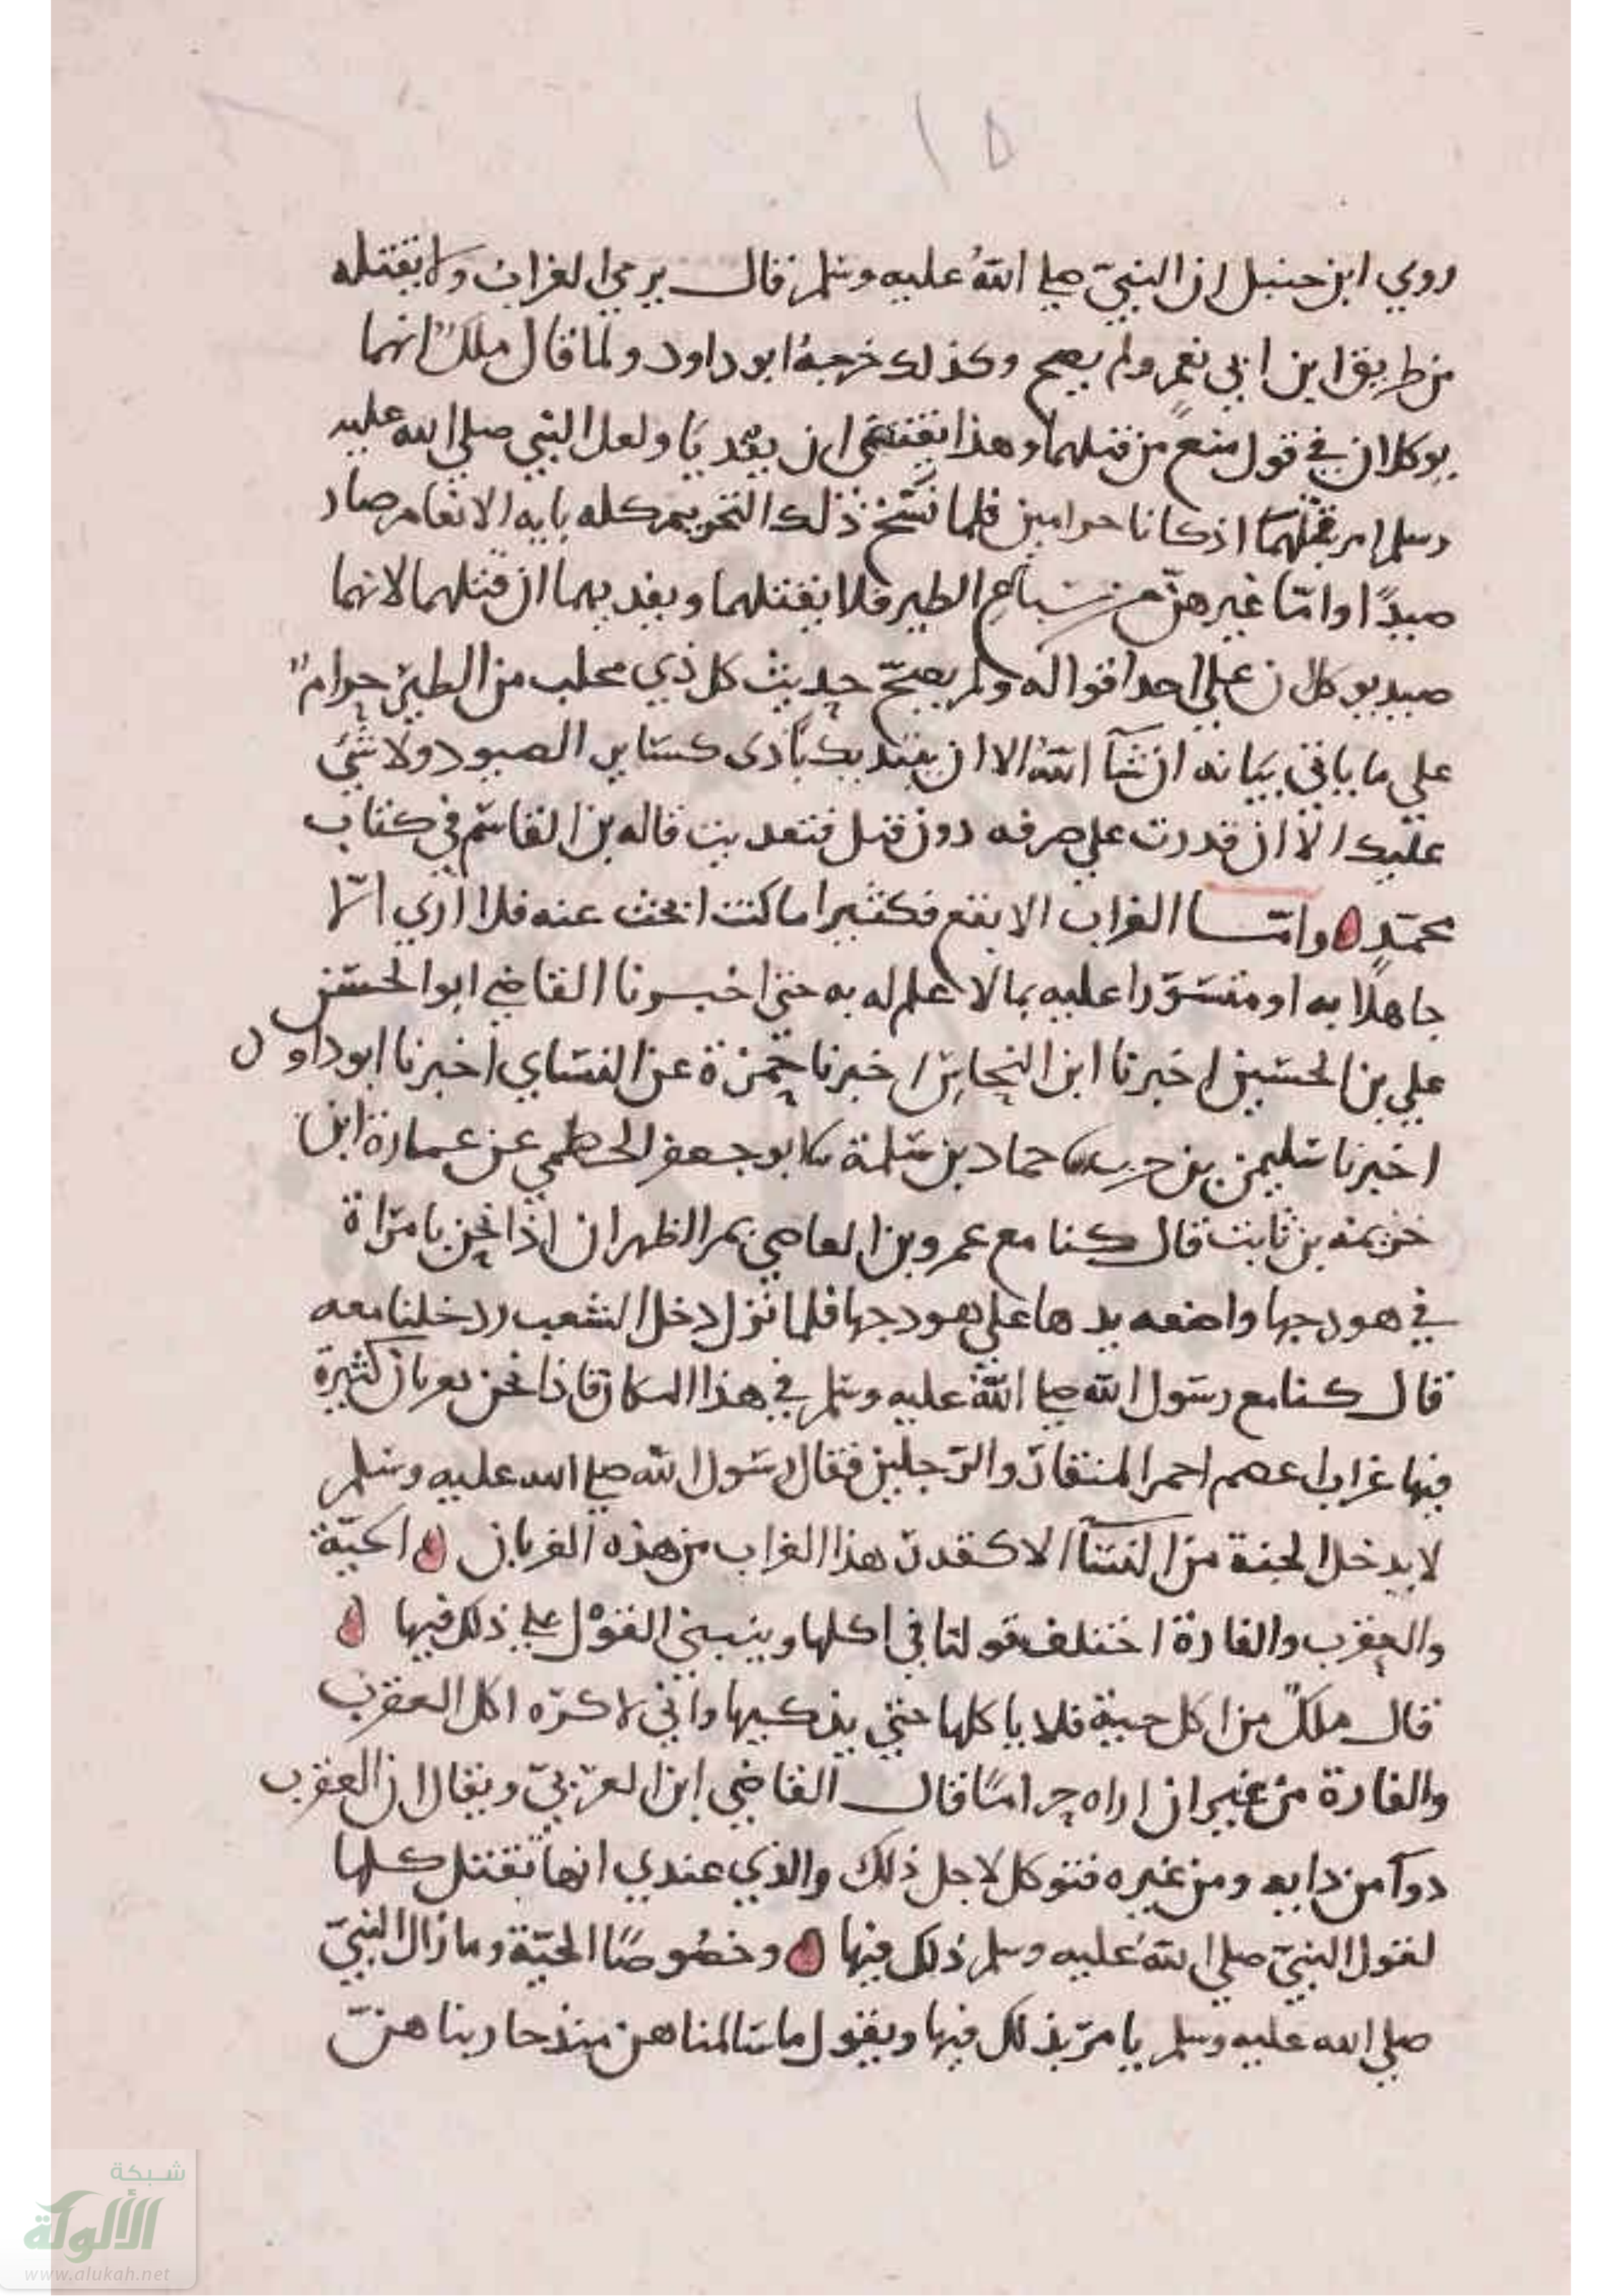 ١٥
روي ابن حنبل ان النبيّ صلى اللهُ عليه وسلم قال يرمي الغراب ولا يقتله
من طريق ابن ابي نعم ولم يصح وكذلك خرجهُ ابو داود ولما قال ملكٌ انهما
يوكلان في قول منع من قتلهما وهذا يقتضي ان يفديا ولعل النبي صلى الله عليه
وسلم امر بقتلهما اذ كانا حرامين فلما نسخ ذلك التحريم كله بايه الانعام صار
صيدًا وامّا غيرهنّ من سباع الطير فلا يقتلهما ويفديهما ان قتلهما لانهما
صيد يوكلان على احد اقواله ولم يصحّ حديث كل ذي مخلب من الطير حرامٌ
علي ما ياتي بيانه ان شآ اللهُ الا ان يبتديك باذى كساير الصيود ولا شئ
عليك الا ان قدرت علي صرفه دون قتل فتعديت قاله بن القاسم في كتاب
محمّدٍ وامّا الغراب الابقع فكثيرا ما كنت ابحث عنه فلا اري الّا
جاهلًا به او متسوّرا عليه بما لا علم له به حتي اخبرنا القاضي ابوالحسن
علي بن الحسين اخبرنا ابن النحاس اخبرنا حمزة عن النساي اخبرنا ابو داود
اخبرنا سليمن بن حرب حماد بن سلمة ابو جعفر الخطمي عن عمارة ابن
خزيمه بن ثابت قال كنا مع عمرو بن العاصي بمر الظهران اذا نحن بامراة
في هودجها واضعه يدها علي هودجها فلما نزل دخل الشعب ودخلنا معه
قال كنا مع رسول الله صلى اللهُ عليه وسلم في هذا المكان فاذا نحن بغربان كثيرة
فيها غراب اعصم احمر المنقار والرجلين فقال رسول الله صلى الله عليه وسلم
لا يدخل الجنة من النسآ الا كقدر هذا الغراب من هذه الغربان الحيّة
والعقرب والفارة اختلف قولنا في اكلها وينبني القول علي ذلك فيها
قال ملكٌ من اكل حية فلا ياكلها حتي يذكيها واني لاكره اكل العقرب
والفارة من غير ان اراه حرامًا قال القاضي ابن العربيّ ويقال ان العقرب
دوآ من دايه ومن غيره فتوكل لاجل ذلك والذي عندي انها تقتل كلها
لقول النبيّ صلى اللهُ عليه وسلم ذلك فيها وخصُوصًا الحيّة وما زال النبيّ
صلى الله عليه وسلم يامر بذلك فيها ويقول ما سالمناهن منذ حاربناهنّ
شبكة
الألوكة
www.alukah.net